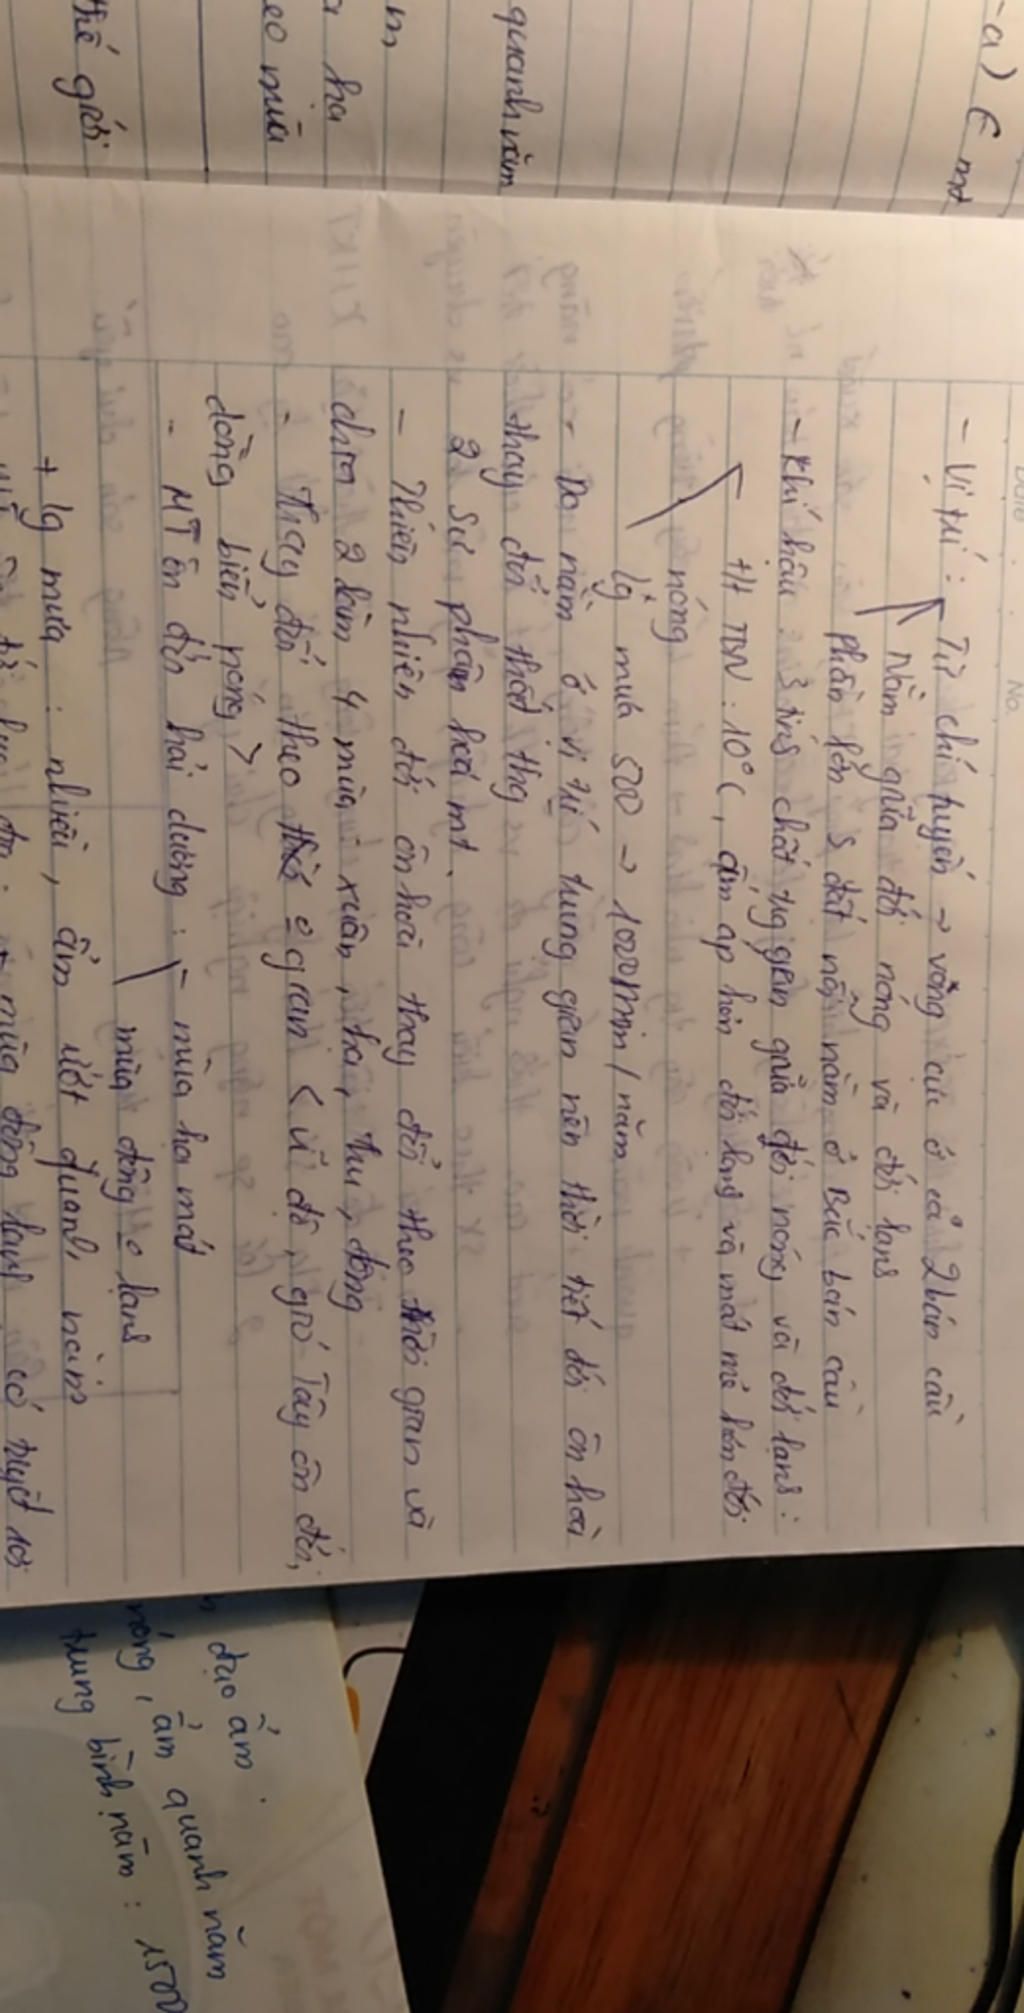 -a) € mđ
quanh năm
m
a hạ
eo mùa
thế giới
Date
No.
- Vị trí : Từ chí tuyến → vòng cực ở cả 2 bán cầu
Nằm giữa đới nóng và đới lạnh
phần lớn S đất nổi nằm ở Bắc bán cầu
- Khí hậu : tính chất tg gian giữa đới nóng và đới lạnh :
t/t TBN : 10°C, ấm áp hơn đới lạnh và mát mẻ hơn đới
nóng
lg mưa 500 → 1000mm/năm
- Do nằm ở vị trí trung gian nên thời tiết đới ôn hoà
thay đổi thất thg
2 Sự phân hoá mt.
- Thiên nhiên đới ôn hoà thay đổi theo thời gian và
chia 2 làm 4 mùa : xuân, hạ, thu, đông
- Thay đổi theo ko gian < vĩ độ, gió Tây ôn đới,
dòng biển nóng >
- MT ôn đới hải dương : - mùa hạ mát
mùa đông ko lạnh
+ lg mưa : nhiều, ẩm ướt quanh năm
mùa đông lạnh có tuyết rơi
đạo ẩm.
nóng, ẩm quanh năm
trung bình năm : 1500